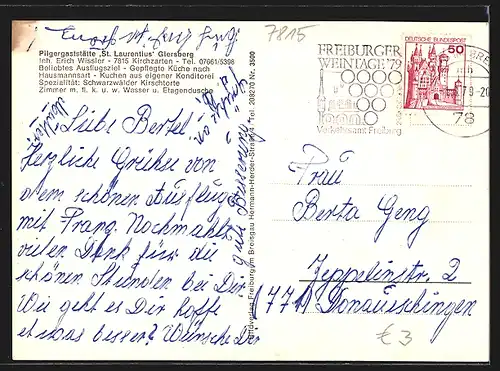 7815
Pilgergaststätte „St. Laurentius" Giersberg
Inh. Erich Wissler - 7815 Kirchzarten - Tel. 07661/5398
Beliebtes Ausflugsziel - Gepflegte Küche nach
Hausmannsart - Kuchen aus eigener Konditorei
Spezialität: Schwarzwälder Kirschtorte
Zimmer m. fl. k. u. w. Wasser u. Etagendusche
Liebe Bertel!
Herzliche Grüße von
dem schönen Ausflug
mit Franz. Nochmahls
vielen Dank für die
schönen Stunden bei Dir.
Wie geht es Dir hoffe
etwas besser? Wünsche Dir
gute Besserung
FREIBURGER
WEINTAGE '79
Verkehrsamt Freiburg
DEUTSCHE BUNDESPOST
50
79-20
78
Frau
Berta Geng
Zeppelinstr. 2
(771) Donaueschingen
€ 3